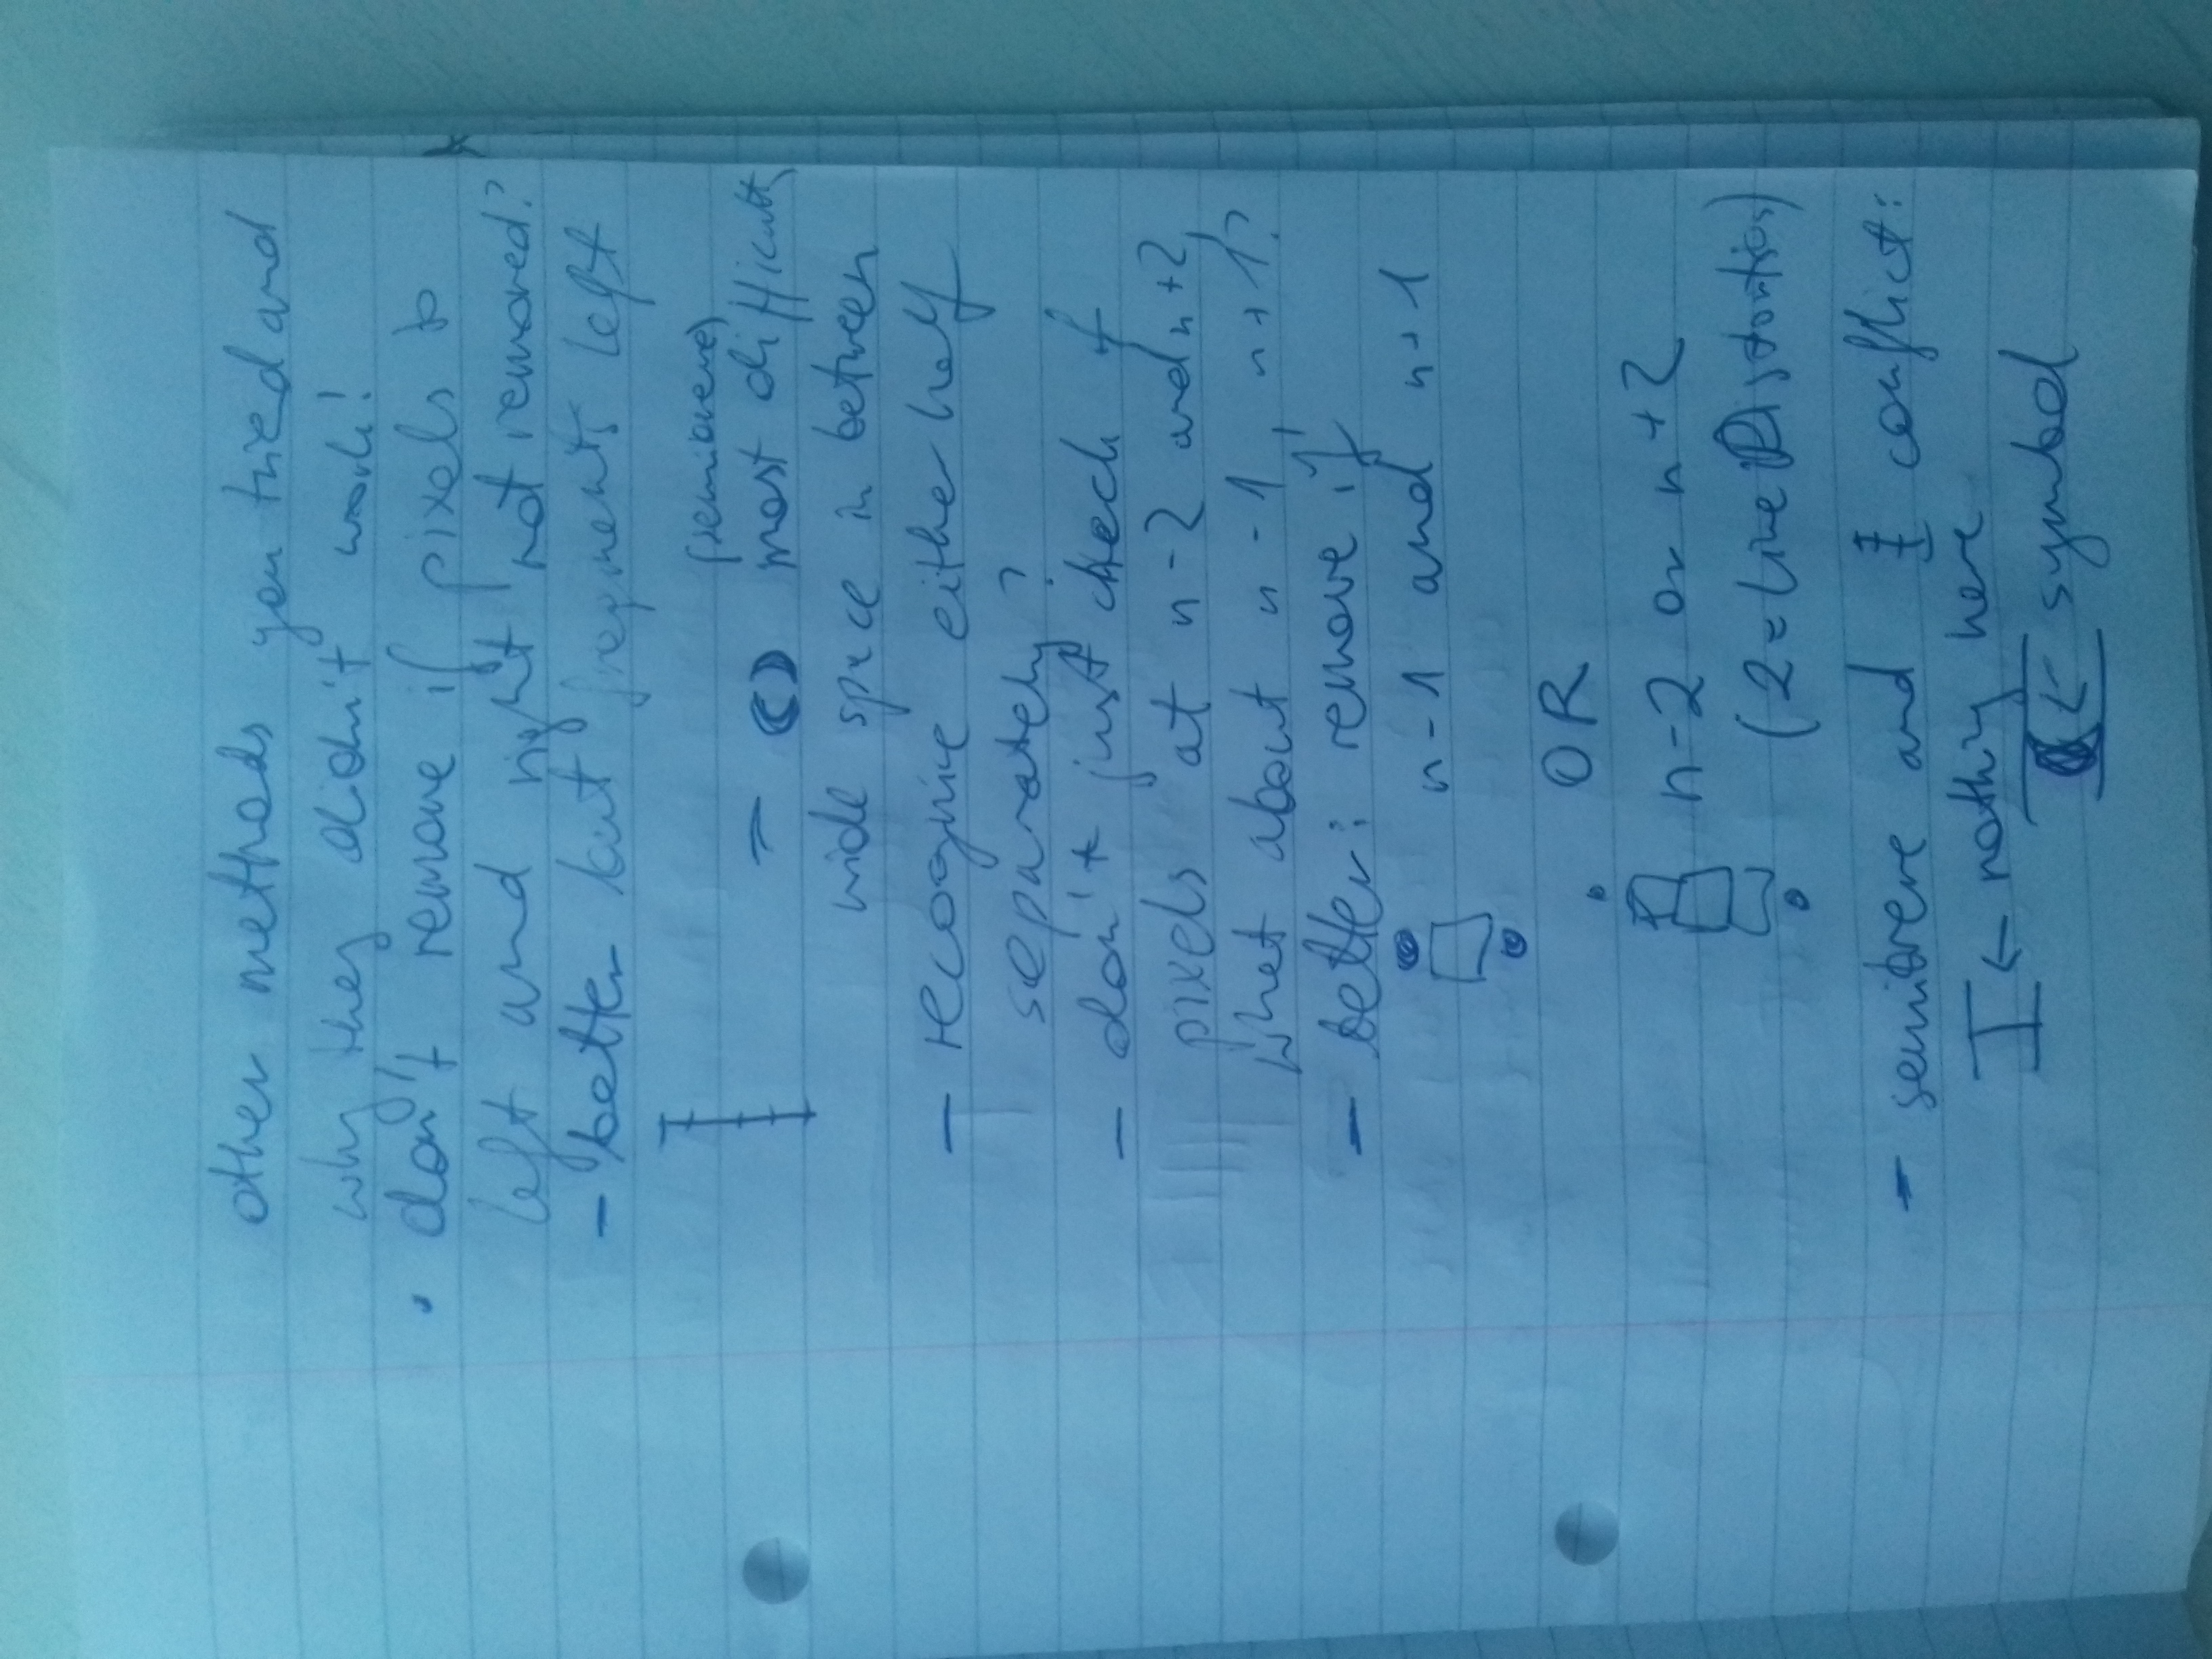 other methods you tried and
why they didn't work!
• don't remove if pixels to
left and right not removed?
- better but fragments left
(semibreve)
- most difficult,
wide space in between
- recognise either half
separately?
- don't just check if
pixels at n-2 and n+2,
what about n-1, n+1?
- better: remove if
n-1 and n+1
OR
n-2 or n+2
(2 = line Distortion)
- semibreve and conflict:
← nothing here
← symbol